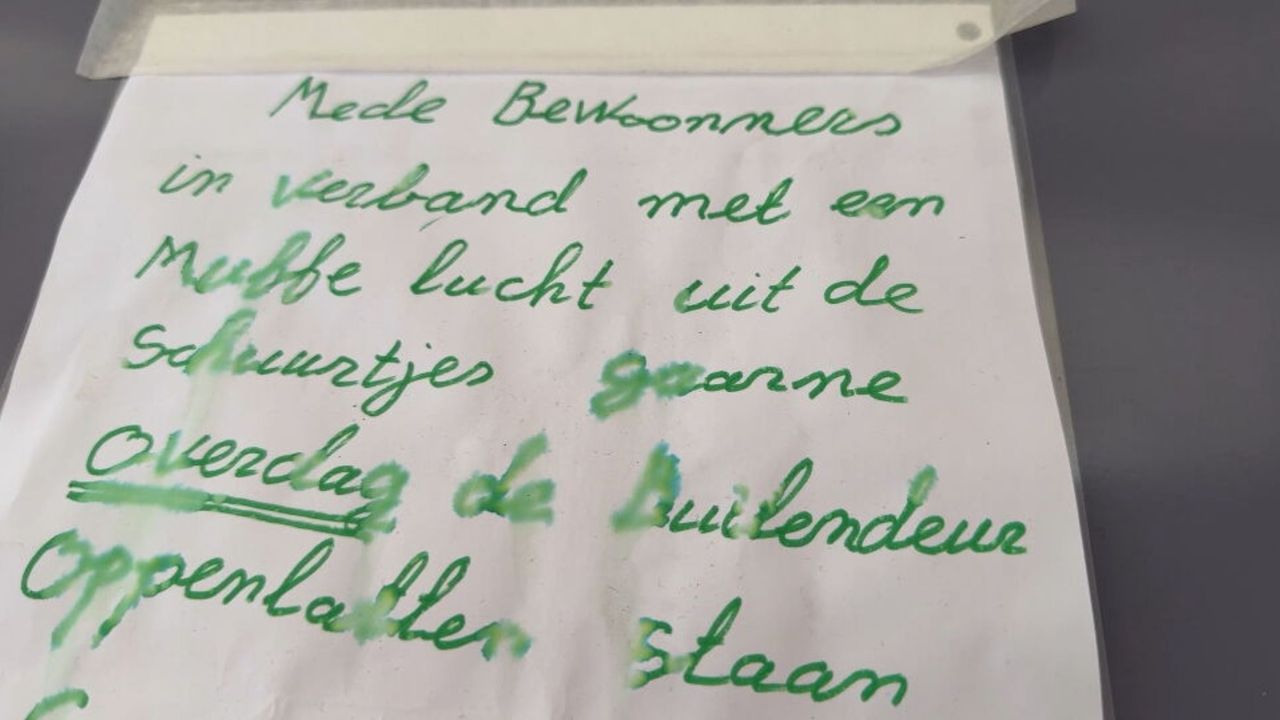 Mede Bewoonners
in verband met een
Muffe lucht uit de
Schuurtjes gaarne
overdag de Buitendeur
Oppenlatten staan